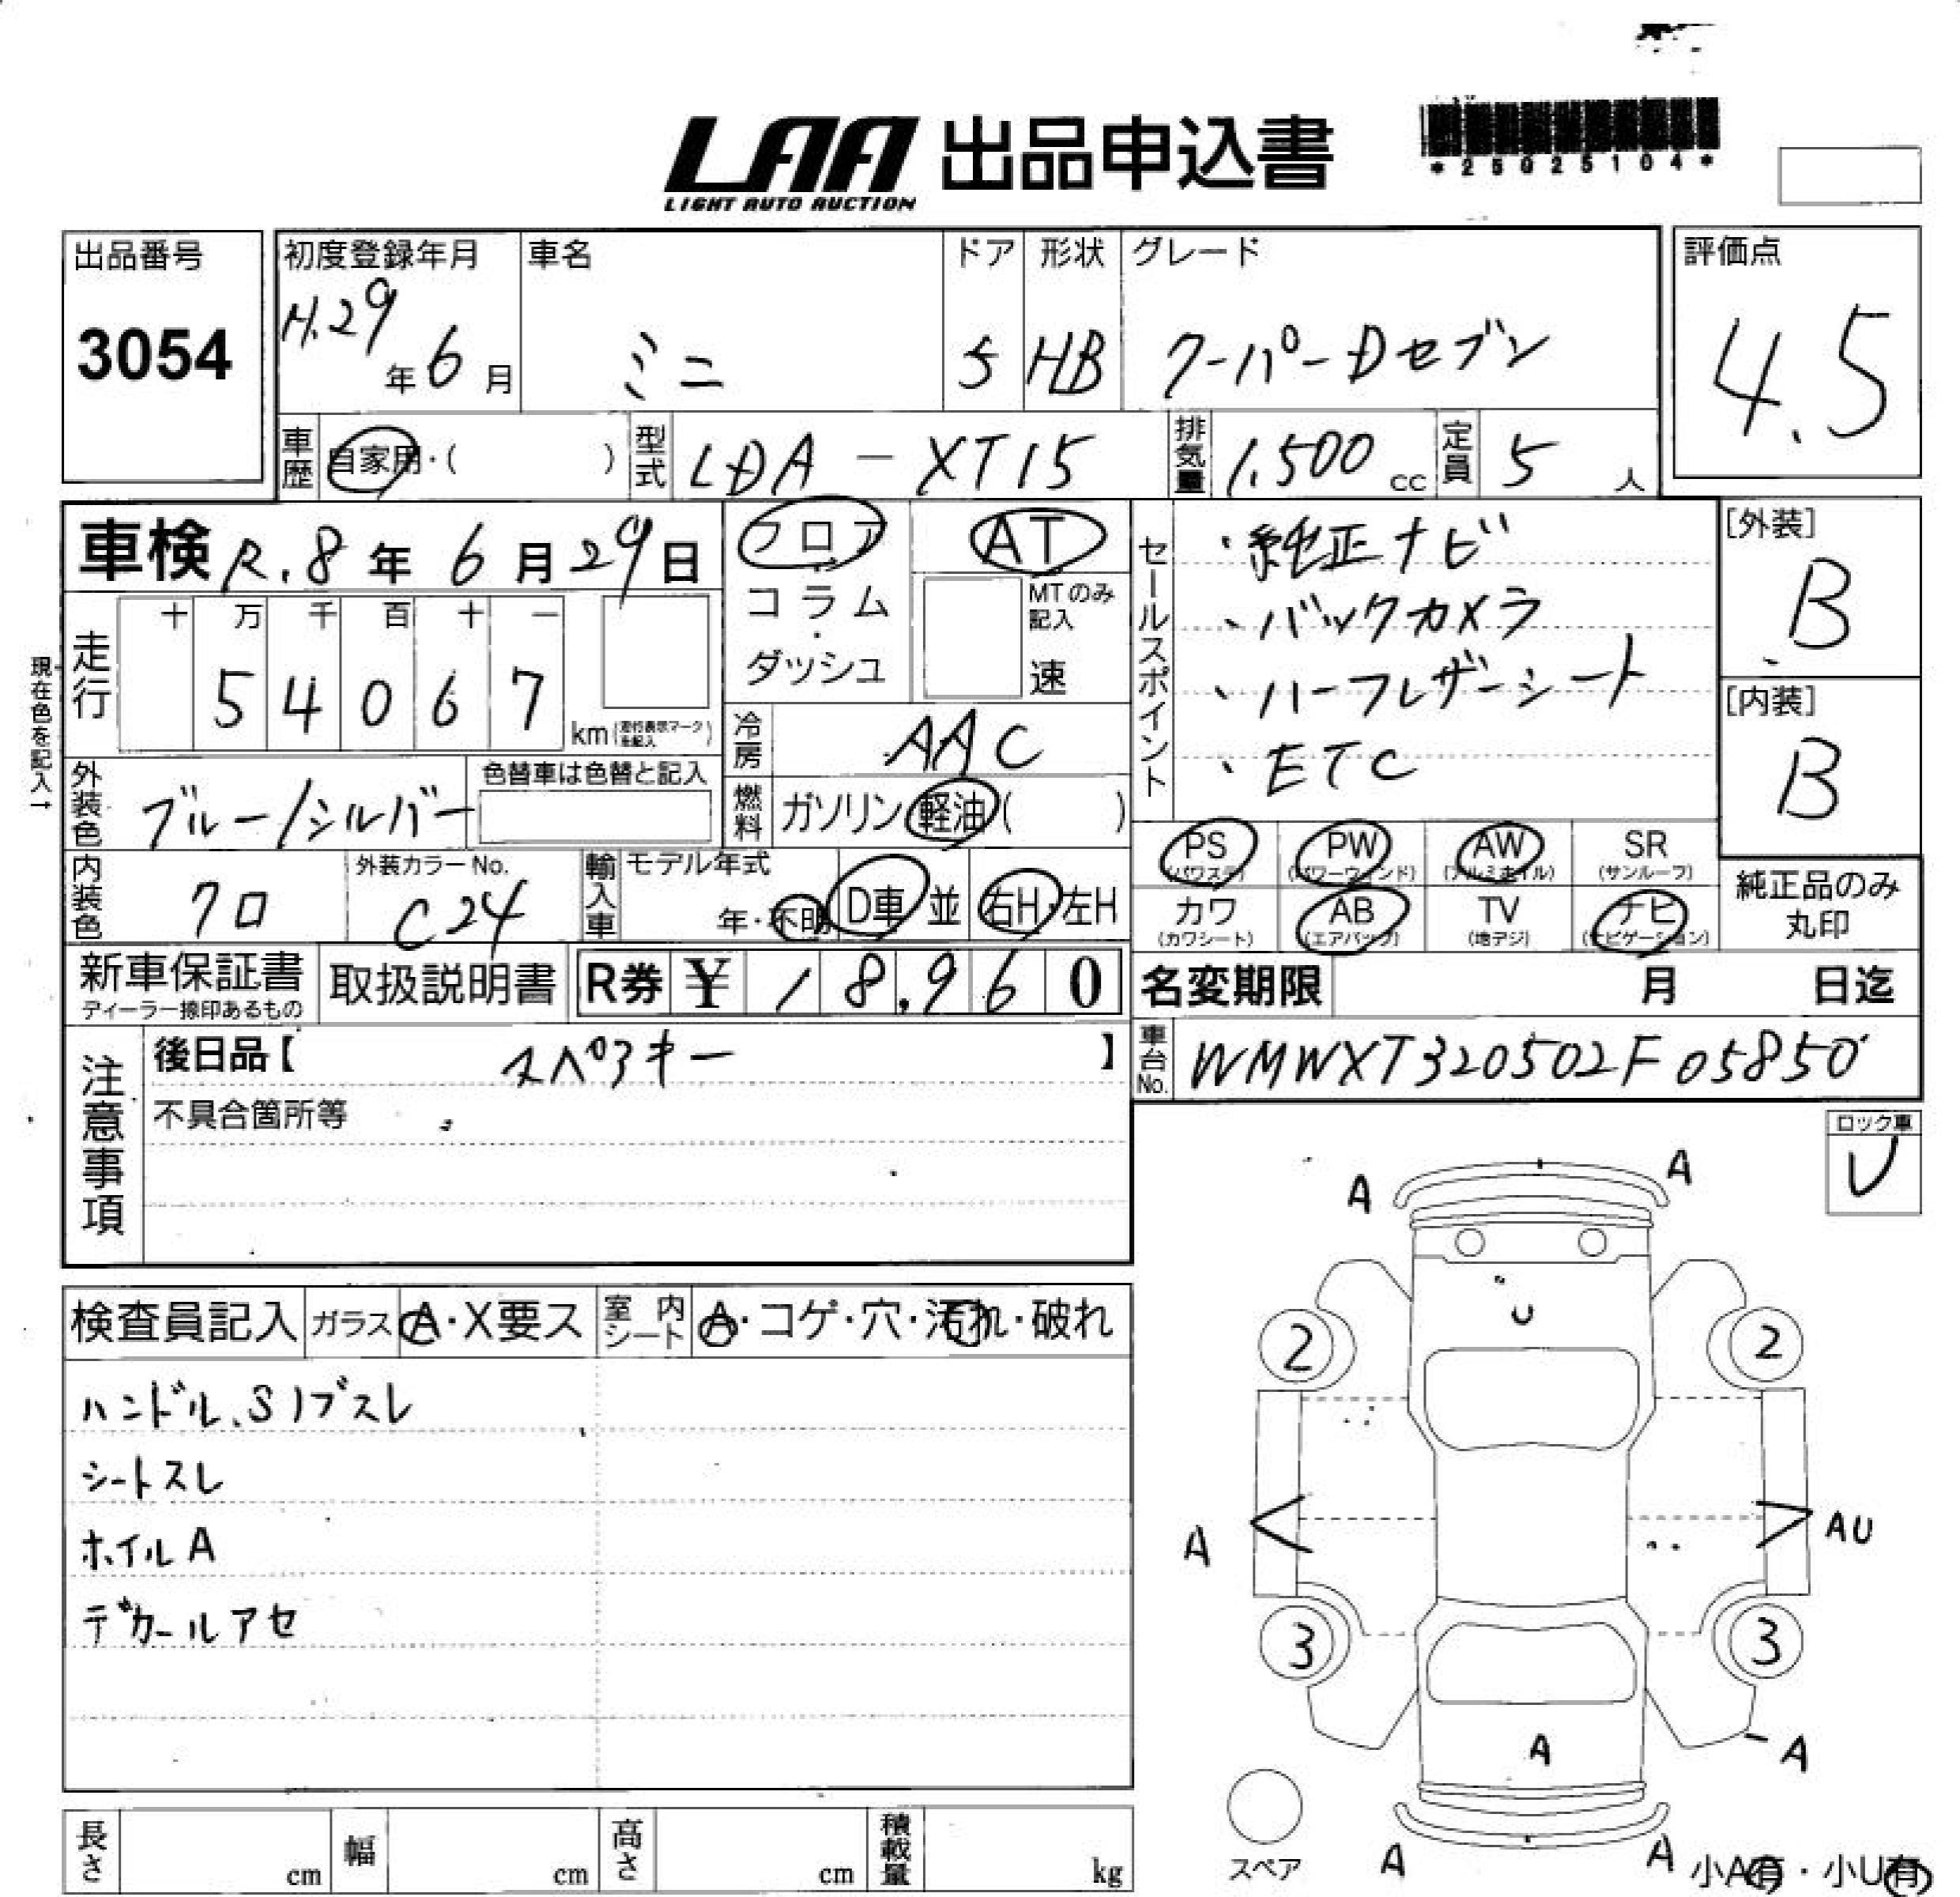 LAA 出品申込書
LIGHT AUTO AUCTION
*25025104*
出品番号
3054
初度登録年月
H.29年6月
車名
ミニ
ドア
5
形状
HB
グレード
クーパーDセブン
評価点
4.5
車歴 自家用・( )
型式 LDA-XT15
排気量 1,500 cc
定員 5 人
車検 R.8年6月29日
フロア
コラム
・
ダッシュ
AT
MTのみ記入
速
セールスポイント
・純正ナビ
、バックカメラ
、ハーフレザーシート
、ETC
[外装]
B
[内装]
B
現在色を記入→
走行
十 万 千 百 十 一
5 4 0 6 7
km(走行表示マークを記入)
冷房 AAC
外装色 ブルー/シルバー
色替車は色替と記入
燃料 ガソリン 軽油 ( )
内装色 クロ
外装カラーNo.
C24
輸入車
モデル年式
年・不明
D車 並
右H・左H
PS
(パワステ)
PW
(パワーウィンド)
AW
(アルミホイル)
SR
(サンルーフ)
カワ
(カワシート)
AB
(エアバック)
TV
(地デジ)
ナビ
(ナビゲーション)
純正品のみ
丸印
新車保証書
ディーラー捺印あるもの
取扱説明書
R券 ¥ 18,960
名変期限 月 日迄
車台No. WMWXT320502F05850
注意事項
後日品【 スペアキー 】
不具合箇所等
ロック車
レ
検査員記入
ガラス A・X要ス
室内シート A・コゲ・穴・汚れ・破れ
ハンドル、Sノブスレ
シートスレ
ホイルA
デカールアセ
A A
U
2 2
A AU
3 3
A A
スペア
A A
小A有・小U有
長さ cm
幅 cm
高さ cm
積載量 kg